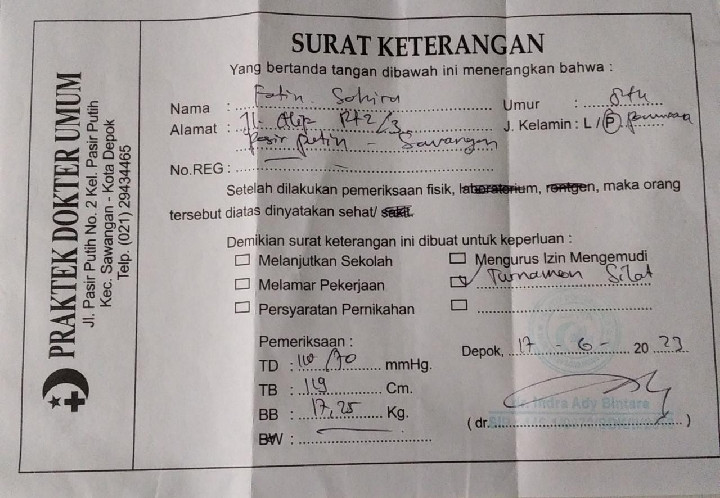 PRAKTEK DOKTER UMUM
Jl. Pasir Putih No. 2 Kel. Pasir Putih
Kec. Sawangan - Kota Depok
Telp. (021) 29434465
SURAT KETERANGAN
Yang bertanda tangan dibawah ini menerangkan bahwa :
Nama : Fatin Sahira Umur :
Alamat : Jl. Rt 2/3 J. Kelamin : L / P
pasir putih - Sawangan
No.REG :
Setelah dilakukan pemeriksaan fisik, laboratorium, rontgen, maka orang
tersebut diatas dinyatakan sehat/ sakit.
Demikian surat keterangan ini dibuat untuk keperluan :
Melanjutkan Sekolah Mengurus Izin Mengemudi
Melamar Pekerjaan Turnamen Silat
Persyaratan Pernikahan
Pemeriksaan :
Depok, 17 - 6 - 20 23
TD : 110/70 mmHg.
TB : 119 Cm.
BB : 17,25 Kg.
BW :
dr. Indra Ady Bintara
(dr. )